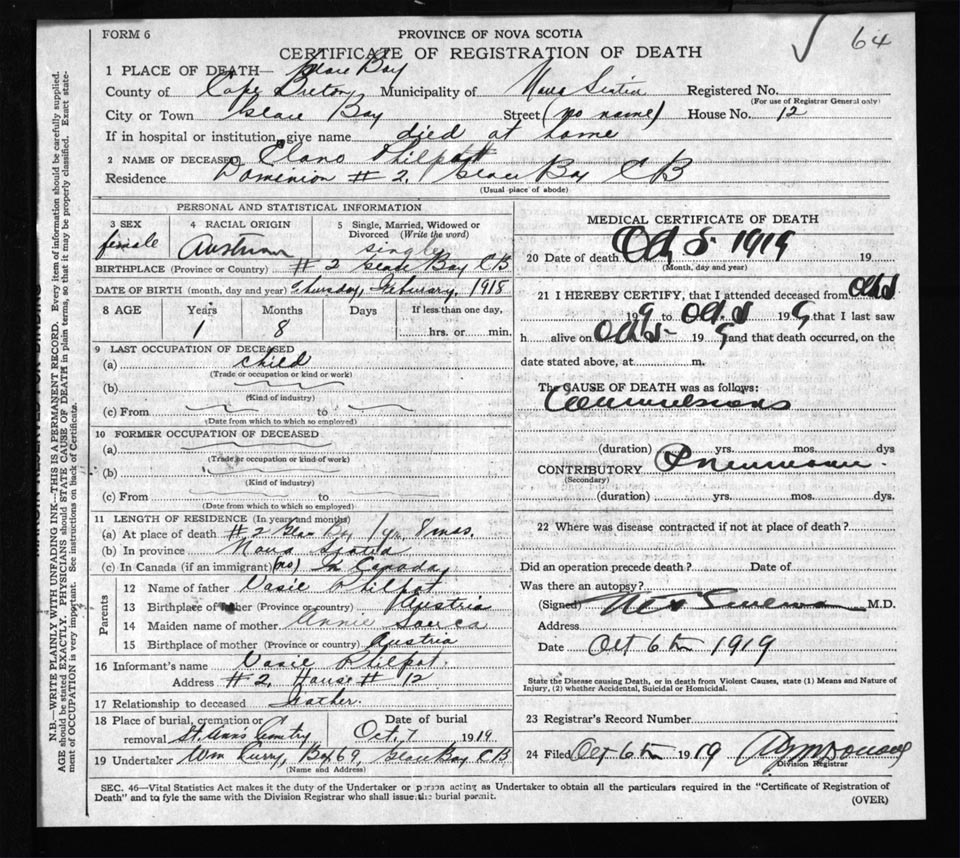 FORM 6
PROVINCE OF NOVA SCOTIA
64
CERTIFICATE OF REGISTRATION OF DEATH
1 PLACE OF DEATH— Glace Bay
County of Cape Breton Municipality of Nova Scotia Registered No.
(For use of Registrar General only)
City or Town Glace Bay Street (no name) House No. 12
If in hospital or institution, give name died at home
2 NAME OF DECEASED Philpot
Residence Dominion # 2. Glace Bay C B
(Usual place of abode)
PERSONAL AND STATISTICAL INFORMATION
3 SEX
female
4 RACIAL ORIGIN
Austrian
5 Single, Married, Widowed or Divorced (Write the word)
single
BIRTHPLACE (Province or Country) # 2 Glace Bay C B
DATE OF BIRTH (month, day and year) Thursday, February, 1918
8 AGE Years Months Days If less than one day,
1 8 hrs. or min.
9 LAST OCCUPATION OF DECEASED
(a) child
(Trade or occupation or kind or work)
(b)
(Kind of industry)
(c) From to
(Date from which to which so employed)
10 FORMER OCCUPATION OF DECEASED
(a)
(Trade or occupation or kind of work)
(b)
(Kind of industry)
(c) From to
(Date from which to which so employed)
11 LENGTH OF RESIDENCE (In years and months)
(a) At place of death # 2 Glace Bay 1 yr 8 mos.
(b) In province Nova Scotia
(c) In Canada (if an immigrant) (no) In Canada
Parents
12 Name of father Vasie Philpot
13 Birthplace of father (Province or country) Austria
14 Maiden name of mother Annie
15 Birthplace of mother (Province or country) Austria
16 Informant's name Vasie Philpot.
Address # 2, House # 12
17 Relationship to deceased Father.
18 Place of burial, cremation or removal St. Ann's Cemetry
Date of burial Oct. 7 1919
19 Undertaker Wm Curry, Box 69, Glace Bay C B
(Name and Address)
MEDICAL CERTIFICATE OF DEATH
20 Date of death Oct 5 1919 19
(Month, day and year)
21 I HEREBY CERTIFY, that I attended deceased from Oct
199 to Oct 199, that I last saw
h alive on Oct 5 19 9 and that death occurred, on the
date stated above, at m.
The CAUSE OF DEATH was as follows:
Convulsions
(duration) yrs. mos. dys
CONTRIBUTORY Pneumonia
(Secondary)
(duration) yrs. mos. dys.
22 Where was disease contracted if not at place of death?
Did an operation precede death? Date of
Was there an autopsy?
(Signed) M.D.
Address
Date Oct 6th 1919
State the Disease causing Death, or in death from Violent Causes, state (1) Means and Nature of Injury, (2) whether Accidental, Suicidal or Homicidal.
23 Registrar's Record Number
24 Filed Oct 6th 1919
Division Registrar
SEC. 46—Vital Statistics Act makes it the duty of the Undertaker or person acting as Undertaker to obtain all the particulars required in the "Certificate of Registration of
Death" and to fyle the same with the Division Registrar who shall issue the burial permit.
(OVER)
MARGIN RESERVED FOR BINDING
N.B.—WRITE PLAINLY WITH UNFADING INK—THIS IS A PERMANENT RECORD. Every item of information should be carefully supplied.
AGE should be stated EXACTLY. PHYSICIANS should STATE CAUSE OF DEATH in plain terms, so that it may be properly classified. Exact state-
ment of OCCUPATION is very important. See instructions on back of Certificate.